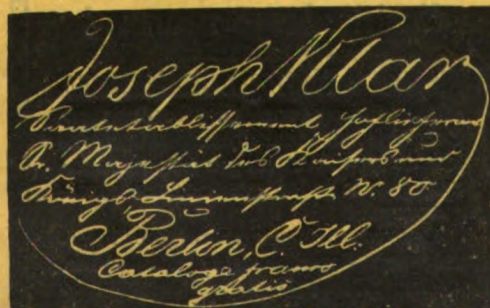 Joseph Klar
Samenetablissement, Hoflieferant
Sr. Majestät des Kaisers und
Königs Linienstraße N. 80
Berlin, C.
Cataloge franco
gratis